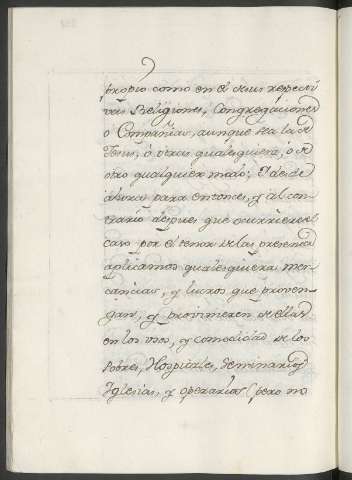 propio como en el de sus respecti
vas Religiones, Congregaciones
ó Compañias, aunque sea la de
Jesus, ó otras qualesquiera, ó de
otro qualquier modo; Y desde
ahora para entonces, y al con-
trario despues que ocurriere el
caso por el tenor de las presentes
aplicamos qualesquiera mer-
cancias, y lucros que proven-
gan, y provinieren de ellas
en los usos, y comodidad de los
Pobres, Hospitales, Seminarios
Iglesias, y operarios (pero no